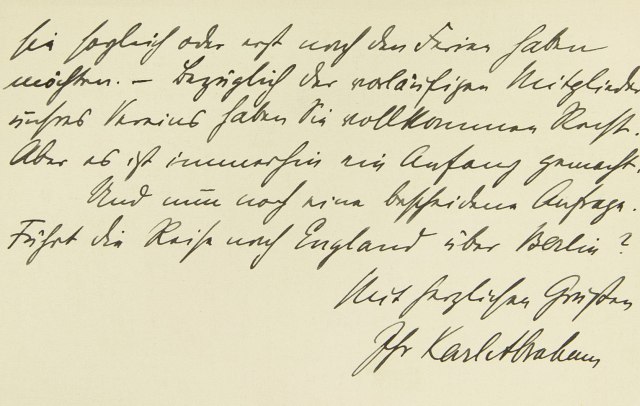 sie sogleich oder erst nach den Ferien haben
möchten. – Bezüglich der vorläufigen Mitglieder
unsres Vereins haben Sie vollkommen Recht.
Aber es ist immerhin ein Anfang gemacht.
Und nun noch eine bescheidene Anfrage.
Führt die Reise nach England über Berlin?
Mit herzlichen Grüßen
Ihr Karl Abraham